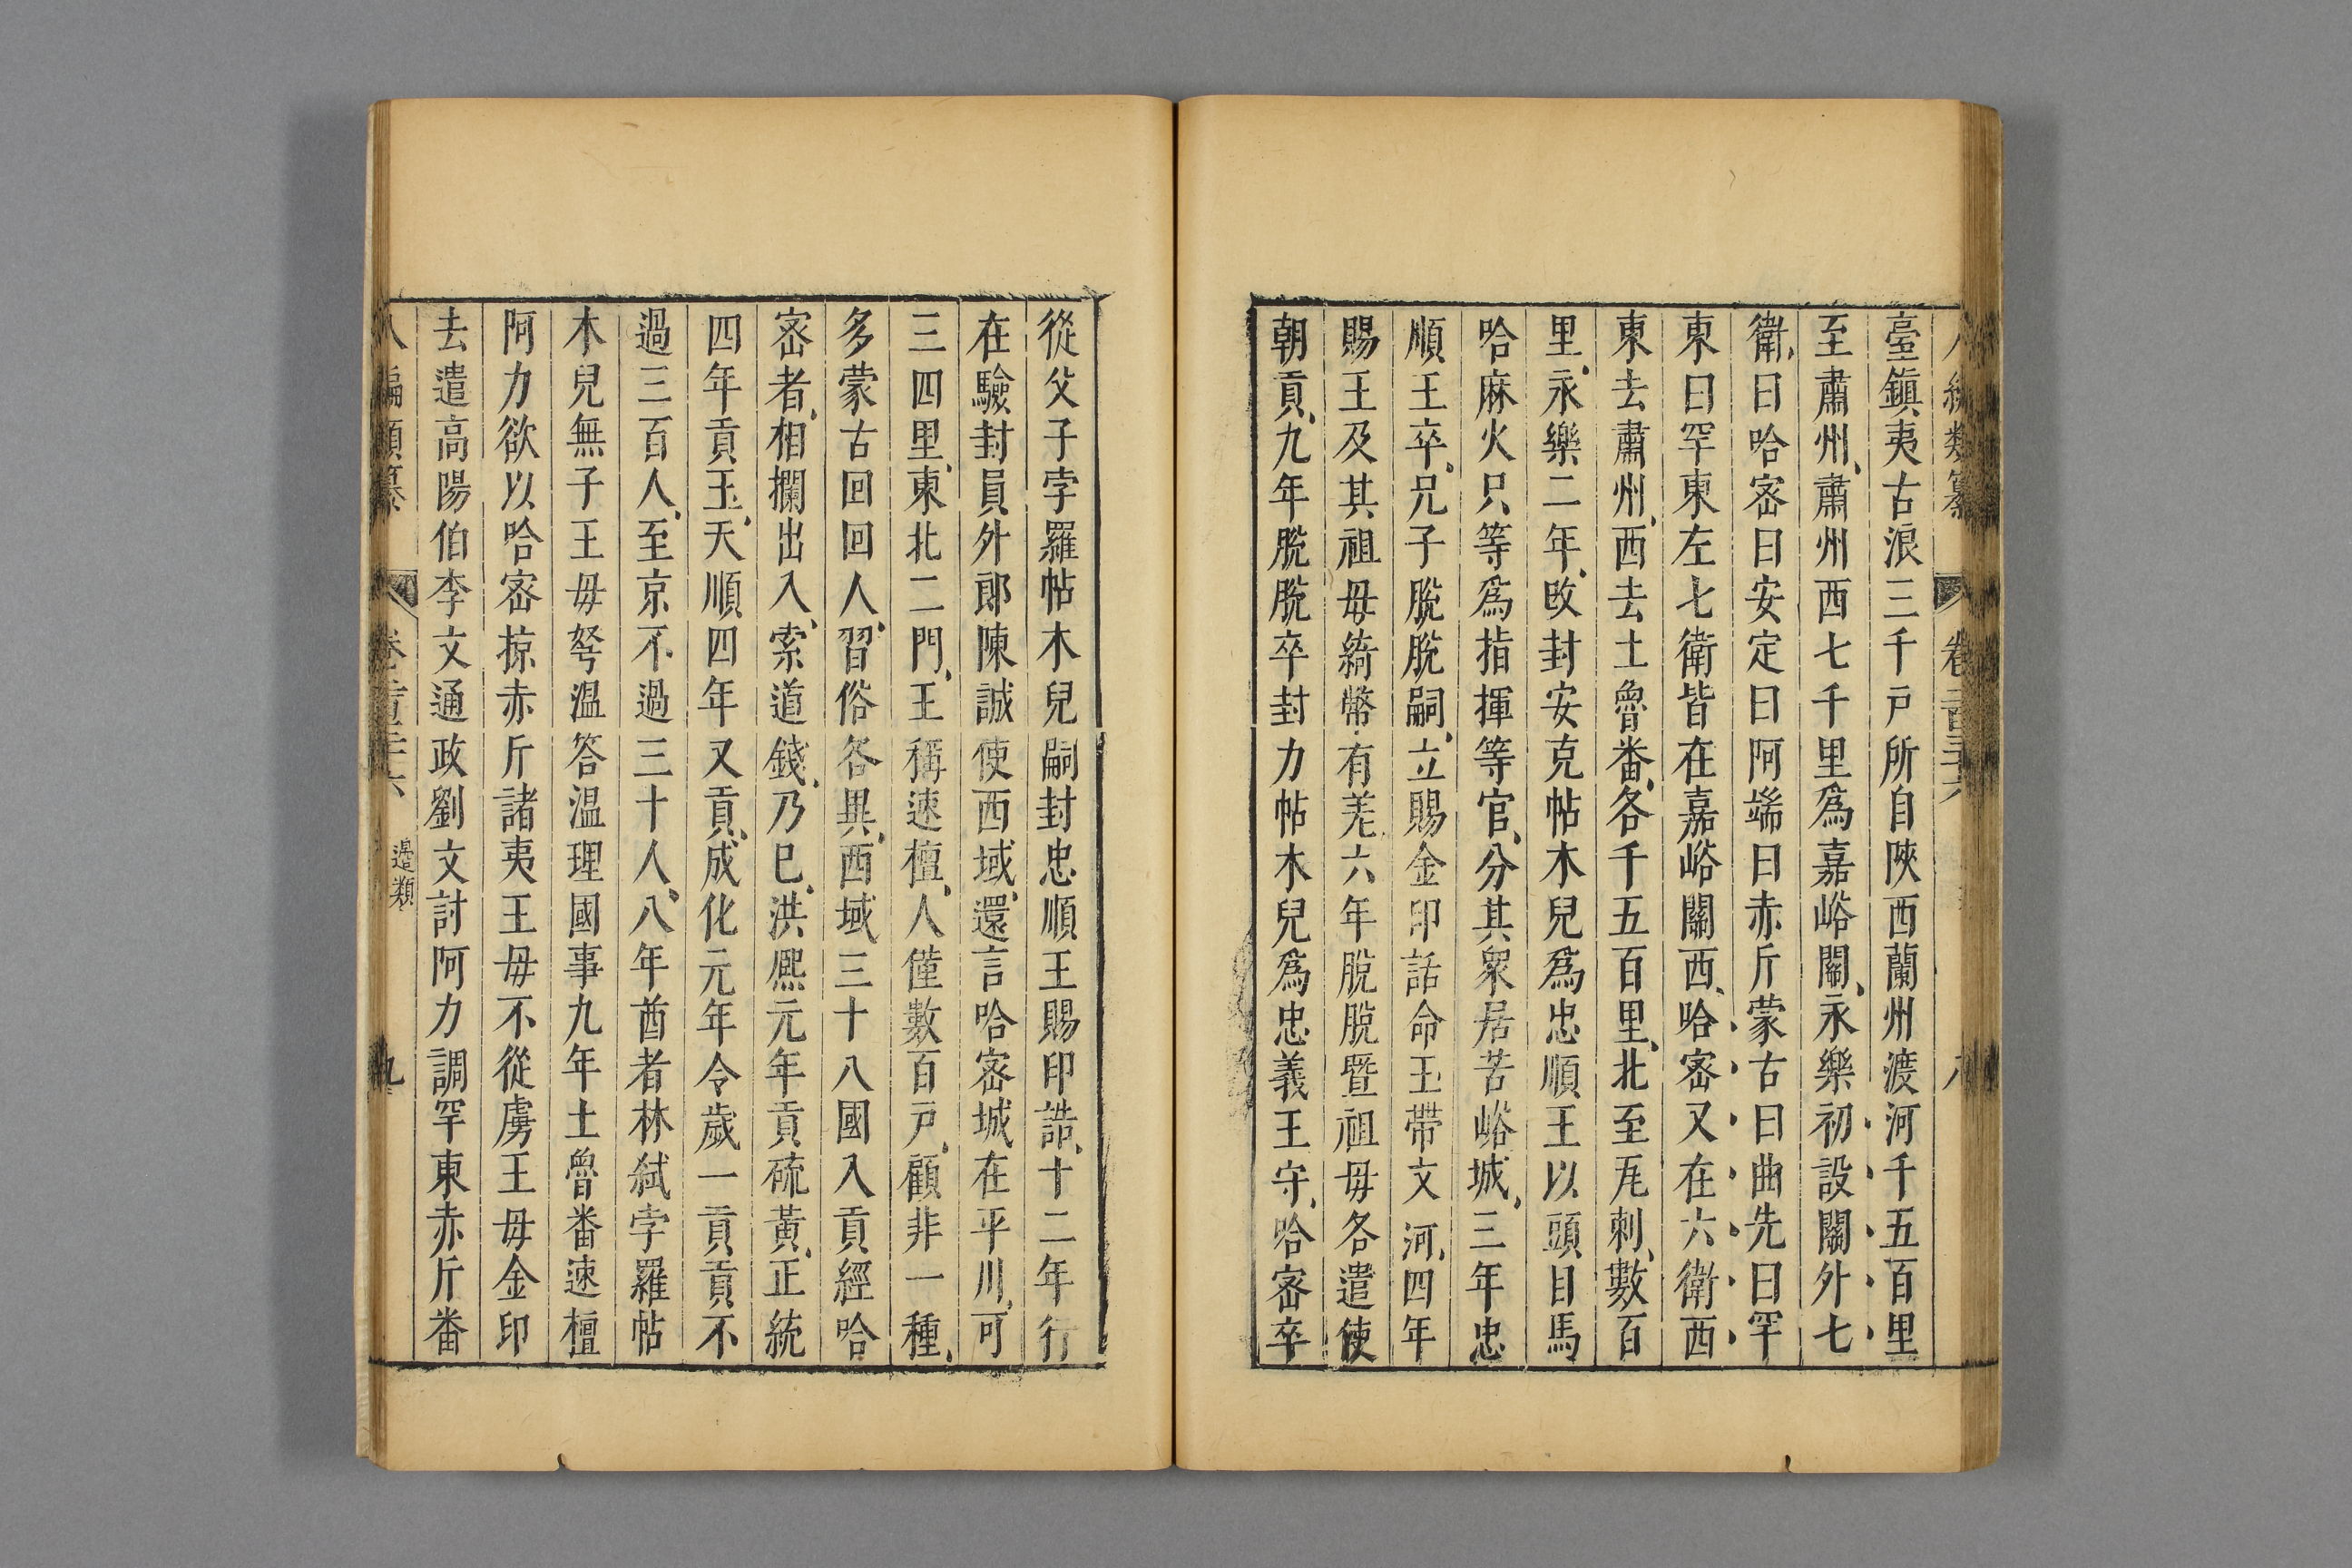 臺鎮夷古浪三千戶所自陜西蘭州渡河千五百里
至肅州、肅州西七千里爲嘉峪關、永樂初設關外七
衛、曰哈宻曰安定曰阿端曰赤斤蒙古曰曲先曰罕
東曰罕東左七衛皆在嘉峪關西、哈宻又在六衛西
東去肅州、西去土魯番、各千五百里、北至瓦剌、數百
里、永樂二年、改封安克帖木兒爲忠順王以頭目馬
哈麻火只等爲指揮等官、分其衆居苦峪城、三年忠
順王卒、兄子脫脫嗣、立賜金印誥命玉帶文河、四年
賜王及其祖母綺幣、有差、六年脫脫暨祖母各遣使
朝貢、九年脫脫卒封力帖木兒爲忠義王守、哈宻卒
從父子孛羅帖木兒嗣封忠順王賜印誥、十二年行
在驗封員外郎陳誠使西域、還言哈宻城在平川、可
三四里、東北二門、王稱速檀、人僅數百戶、顧非一種、
多蒙古回回人、習俗各異、西域三十八國入貢經哈
宻者、相攔出入、索道錢、乃巳、洪熈元年貢硫黃、正統
四年貢玉、天順四年又貢、成化元年令歲一貢貢不
過三百人、至京不過三十人、八年酋者林弑孛羅帖
木兒無子王母弩温答温理國事九年土魯番速檀
阿力欲以哈宻掠赤斤諸夷王母不從虜王母金印
去遣高陽伯李文通政劉文討阿力調罕東赤斤番
編類纂 卷 邊類 九